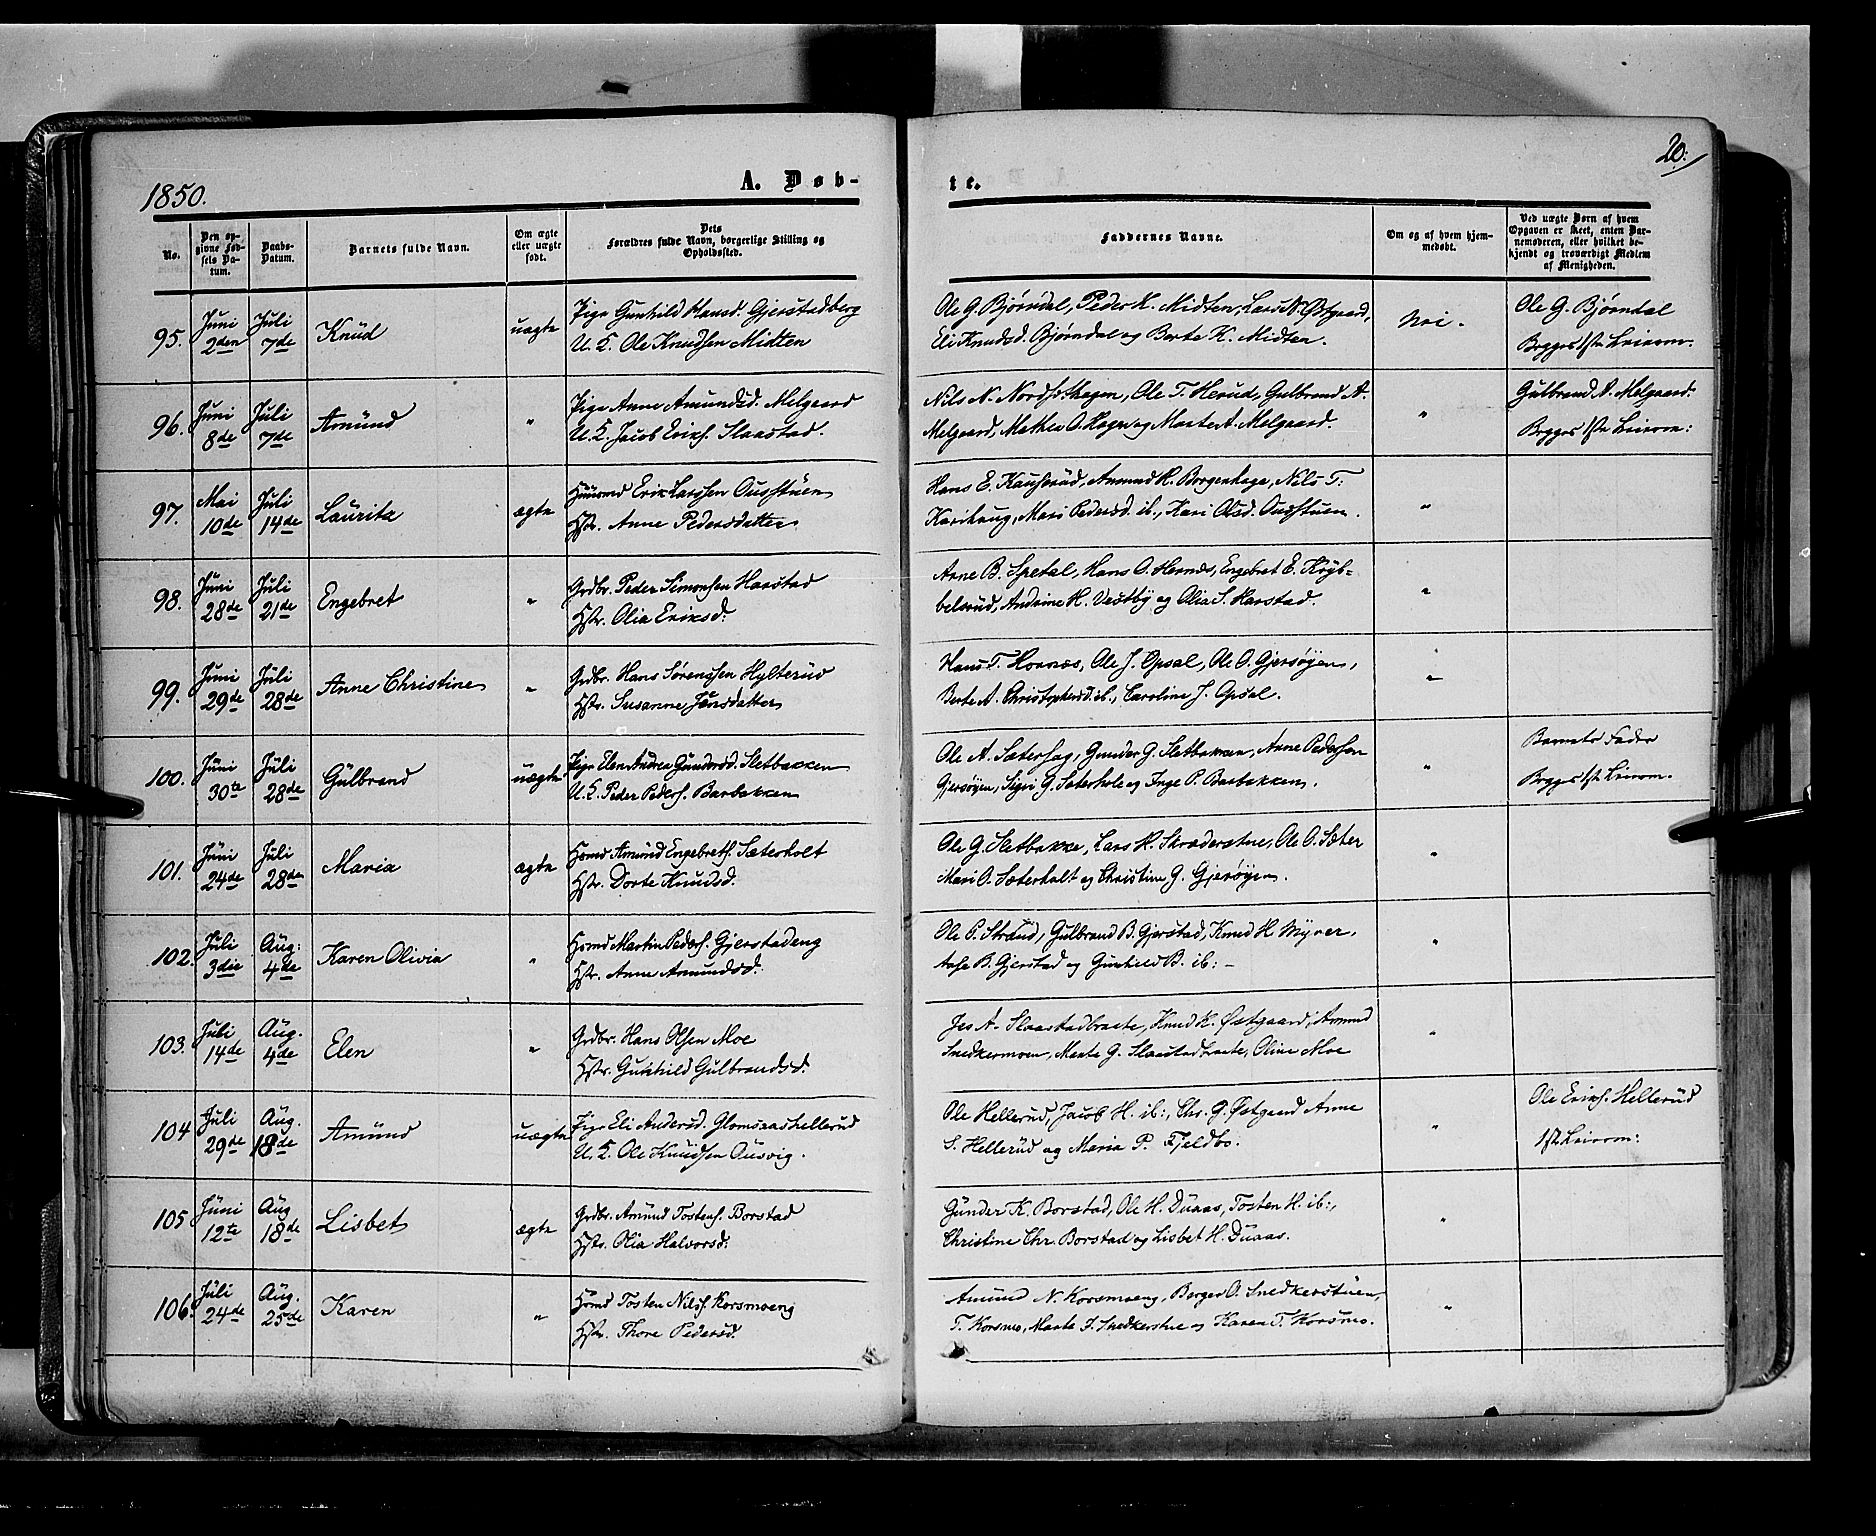 1850.
A. Døb-
te.
20.
No.
Den opgivne Fødsels Datum.
Daabs-Datum.
Barnets fulde Navn.
Om ægte eller uægte født.
Dets Forældres fulde Navn, borgerlige Stilling og Opholdssted.
Faddernes Navne.
Om og af hvem hjemmedøbt.
Ved uægte Børn af hvem Opgaven er skeet, enten Barnemoderen, eller hvilket bekjendt og troværdigt Medlem af Menigheden.
95. Juni 2den Juli 7de Knud uægte
Pige Gunhild Hansd. Gjerstadberg
U. K. Ole Knudsen Midten
Ole G. Bjørndal, Peder K. Midten, Lars N. Østgaard,
Eli Knudsd. Bjørndal og Berte K. Midten.
Nei.
Ole G. Bjørndal
Begges 1ste Leierm.
96. Juni 8de Juli 7de Amund "
Pige Anne Amundsd. Melgaard
U. K. Jacob Eriks. Slaastad.
Nils N. Nordhagen, Ole T. Herud, Gulbrand A.
Melgaard, Mathea O. Hagen og Marte A. Melgaard.
"
Gulbrand A. Melgaard.
Begges 1ste Leierm:
97. Mai 10de Juli 14de Lauritz ægte
Huusmd Erik Larssen Ousstuen
Hstr. Anne Pedersdatter
Hans E. Kauserud, Amund H. Borgenhage, Nils T.
Karihaug, Mari Pedersd. ib., Kari Olsd. Ousstuen.
"
98. Juni 28de Juli 21de Engebret "
Grdbr. Peder Simonsen Harstad
Hstr. Olia Eriksd:
Arne B. Spetal, Hans O. Hernes, Engebret E. Kryb-
belsrud, Andrine H. Vestby og Olia S. Harstad.
"
99. Juni 29de Juli 28de Anne Christine "
Grdbr. Hans Sørenssen Hylterud
Hstr. Susanne Jensdatter
Hans T. Hornæs, Ole J. Opsal, Ole O. Gjersøyen,
Berte A. Christophersd. ib., Caroline J. Opsal.
"
100. Juni 30te Juli 28de Gulbrand uægte
Pige Elen Andrea Gundersd. Sletbakken
U. K. Peder Peders. Barbakken
Ole A. Sætershag, Gunder G. Sletbakken, Anne Pedersen
Gjersøyen, Sigri G. Sæterhole og Inge P. Barbakken.
"
Barnets Fader
Begges 1ste Leierm.
101. Juni 24de Juli 28de Maria ægte
Hsmd Amund Engebrets. Sæterholt
Hstr. Dorte Knudsd.
Ole G. Sletbakke, Lars H. Skrederstue, Ole O. Sæter
Mari O. Sæterholt og Christine G. Gjersøyen.
"
102. Juli 3die Aug: 4de Karen Olivia "
Hsmd Martin Peders. Gjerstadeng
Hstr. Anne Amundsd.
Ole P. Strand, Gulbrand B. Gjerstad, Knud H. Myrer,
Aase B. Gjerstad og Gunhild B. ib: –
"
103. Juli 14de Aug. 4de Elen "
Grdbr. Hans Olsen Moe
Hstr. Gunhild Gulbrandsd.
Jes A. Slaastadbraate, Knud K. Østgaard, Amund
Snedkermoen, Marte G. Slaastadbraate, Oline Moe
"
104 Juli 29de Aug. 18de Amund uægte
Pige Eli Andersd. Glomsaashellerud
U. K. Ole Knudsen Ousvig.
Ole Hellerud, Jacob H. ib:, Chr. G. Østgaard Anne
S. Hellerud og Maria P. Fjeldbo.
"
Ole Eriks. Hellerud
1ste Leierm:
105 Juni 12te Aug 18de Lisbet ægte
Grdbr. Amund Tostens. Borstad
Hstr. Olia Halvorsd.
Gunder K. Borstad, Ole H. Duaas, Tosten H. ib:,
Christine Chr. Borstad og Lisbet H. Duaas.
"
106. Juli 24de Aug. 25de Karen "
Hsmd Tosten Nils. Korsmoeng
Hstr. Thore Pedersd.
Amund N. Korsmoeng, Berger O. Snedkerstuen,
T. Korsmo, Marte J. Snedkerstue og Karen T. Korsmo.
"